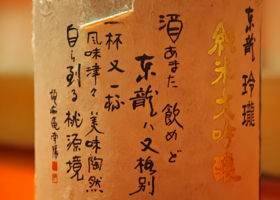 東龍 玲瓏
純米大吟醸
酒あまた 飲めど
東龍ハ又格別
一杯 又一杯
風味津々 美味陶然
自ら到る 桃源境